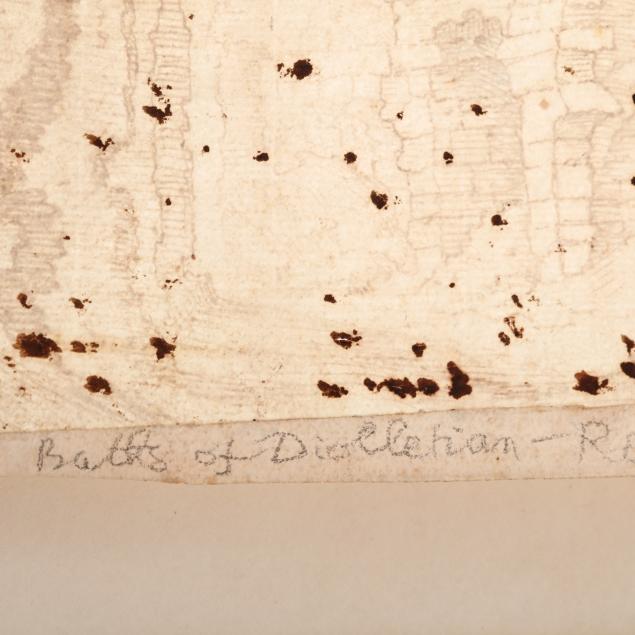 Baths of Diolletian - R